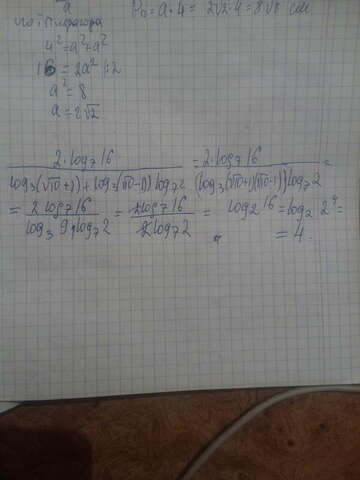 a
P₀ = a·4 = 2√2·4 = 8√2 см
по т. Пифагора
4² = a² + a²
16 = 2a² |:2
a² = 8
a = 2√2
2·log₇16 / (log₃(√10+1) + log₃(√10-1)) log₇2 = 2·log₇16 / (log₃(√10+1)(√10-1)) log₇2 =
= 2log₇16 / log₃9·log₇2 = 2log₇16 / 2log₇2 = log₂16 = log₂2⁴ =
= 4.